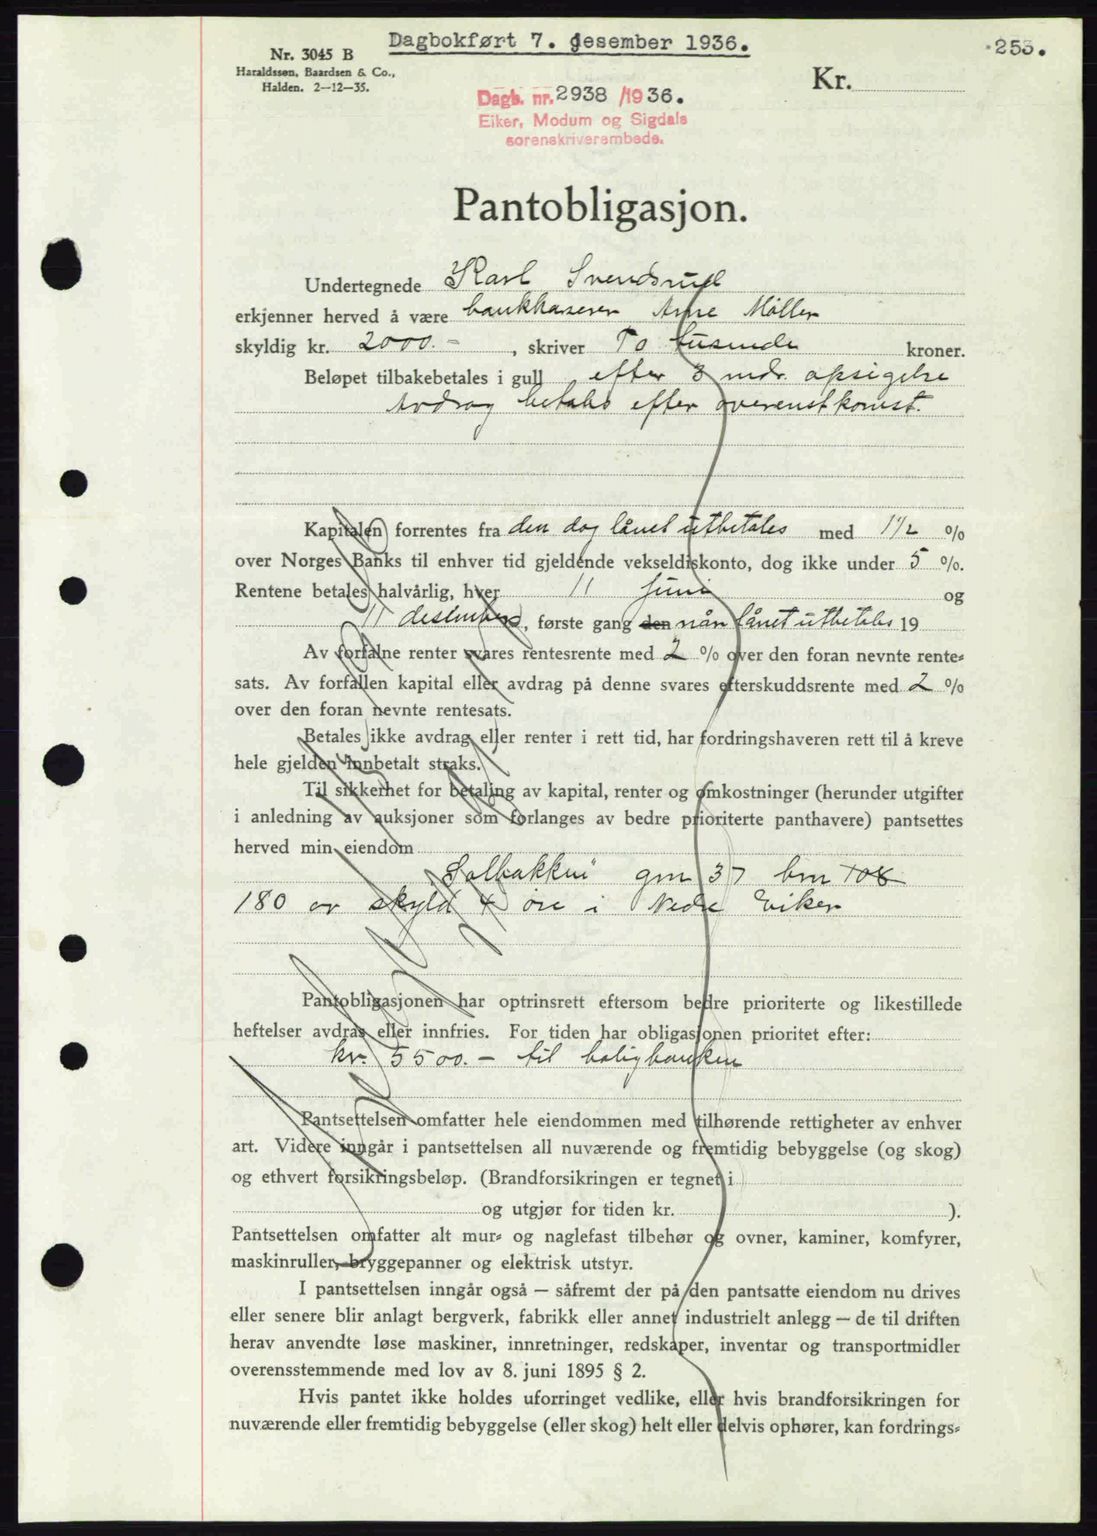 Dagbokført 7. desember 1936.
253.
Nr. 3045 B
Haraldssøn, Baardsen & Co.,
Halden. 2—12—35.
Kr.
Dagb. nr. 2938 /1936.
Eiker, Modum og Sigdals
sorenskriverembede.
Pantobligasjon.
Undertegnede Karl Svendsrud
erkjenner herved å være bankkasserer Arne Møller
skyldig kr. 2000.- , skriver To tusinde kroner.
Beløpet tilbakebetales i gull efter 3 mdr. opsigelse
Avdrag betales efter overenskomst.
Kapitalen forrentes fra den dag lånet utbetales med 1½ %
over Norges Banks til enhver tid gjeldende vekseldiskonto, dog ikke under 5 %.
Rentene betales halvårlig, hver 11 juni og
11 desember, første gang den når lånet utbetales 19
Av forfalne renter svares rentesrente med 2 % over den foran nevnte rente-
sats. Av forfallen kapital eller avdrag på denne svares efterskuddsrente med 2 %
over den foran nevnte rentesats.
Betales ikke avdrag eller renter i rett tid, har fordringshaveren rett til å kreve
hele gjelden innbetalt straks.
Til sikkerhet for betaling av kapital, renter og omkostninger (herunder utgifter
i anledning av auksjoner som forlanges av bedre prioriterte panthavere) pantsettes
herved min eiendom
"Solbakken" gnr 37 bnr 108
180 av skyld 4 øre i Nedre Eiker
Pantobligasjonen har optrinsrett eftersom bedre prioriterte og likestillede
heftelser avdras eller innfries. For tiden har obligasjonen prioritet efter:
kr. 5500.- til boligbanken
Pantsettelsen omfatter hele eiendommen med tilhørende rettigheter av enhver
art. Videre inngår i pantsettelsen all nuværende og fremtidig bebyggelse (og skog)
og ethvert forsikringsbeløp. (Brandforsikringen er tegnet i
og utgjør for tiden kr. ).
Pantsettelsen omfatter alt mur- og naglefast tilbehør og ovner, kaminer, komfyrer,
maskinruller, bryggepanner og elektrisk utstyr.
I pantsettelsen inngår også — såfremt der på den pantsatte eiendom nu drives
eller senere blir anlagt bergverk, fabrikk eller annet industrielt anlegg — de til driften
herav anvendte løse maskiner, innretninger, redskaper, inventar og transportmidler
overensstemmende med lov av 8. juni 1895 § 2.
Hvis pantet ikke holdes uforringet vedlike, eller hvis brandforsikringen for
nuværende eller fremtidig bebyggelse (eller skog) helt eller delvis ophører, kan fordrings-